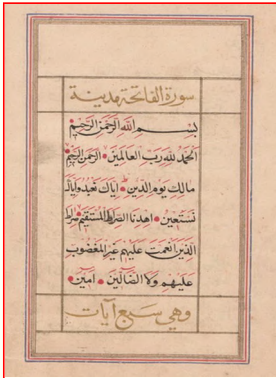 سورة الفاتحة مدينة
بسم الله الرحمن الرحيم
الحمد لله رب العالمين الرحمن الرحيم
مالك يوم الدين اياك نعبد واياك
نستعين اهدنا الصراط المستقيم صراط
الذين انعمت عليهم غير المغضوب
عليهم ولا الضالين امين
وهي سبع آيات